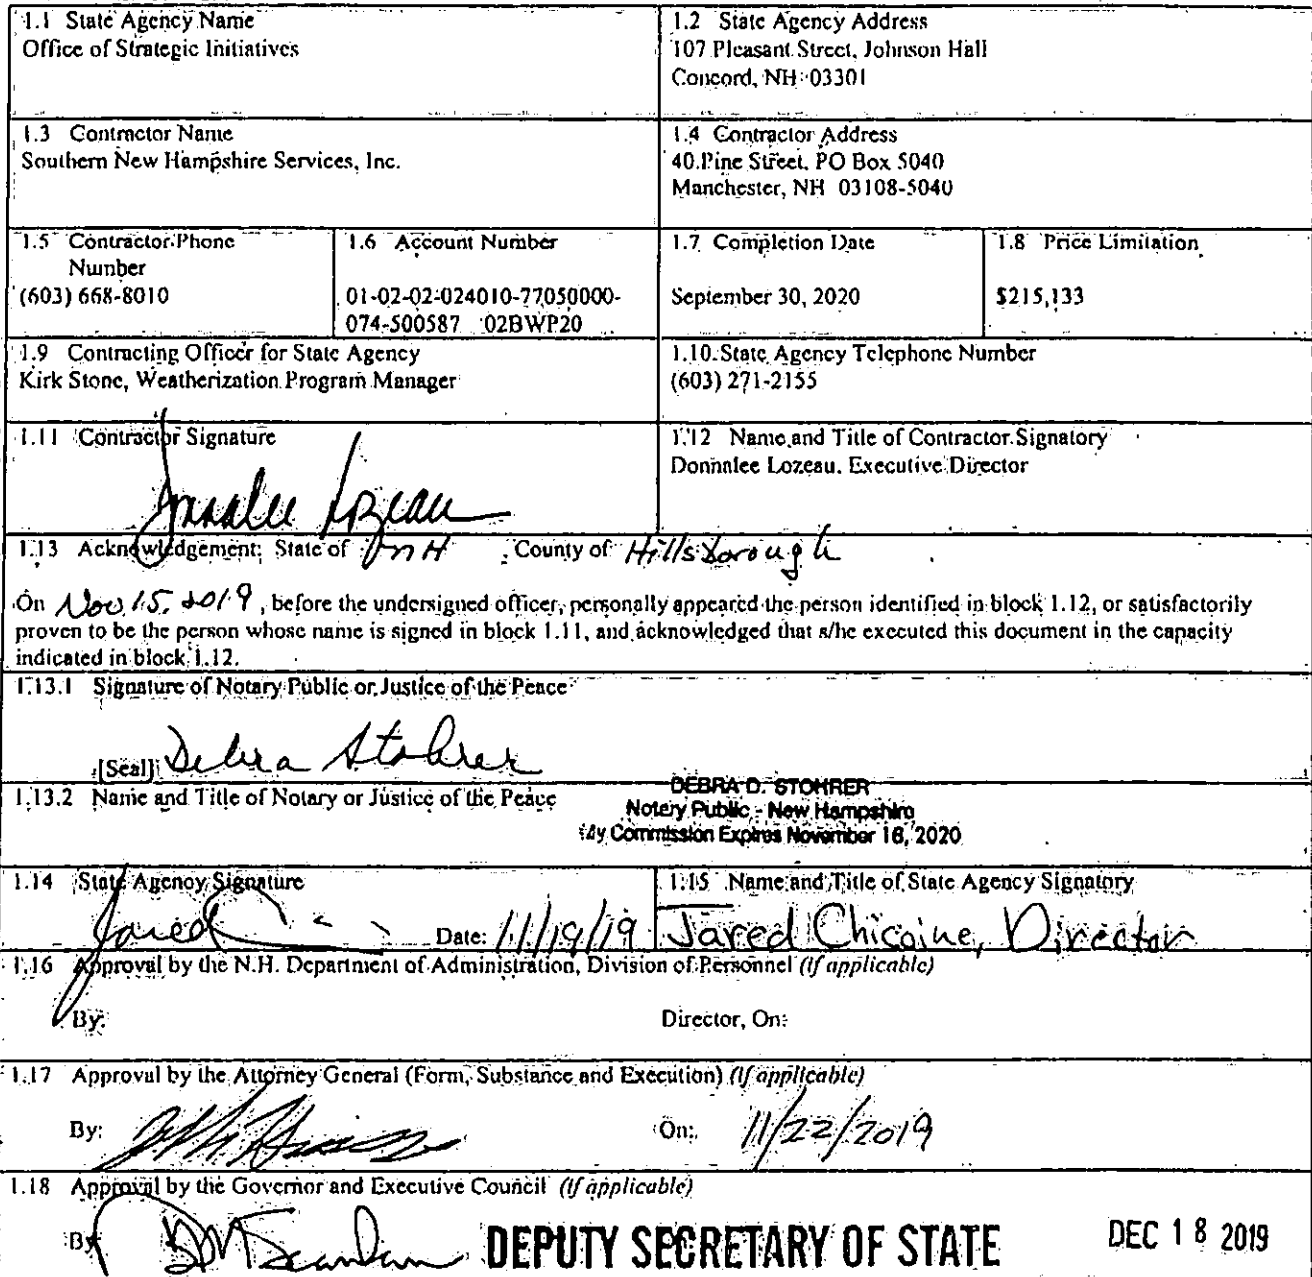 1.1 State Agency Name
Office of Strategic Initiatives
1.2 State Agency Address
107 Pleasant Street, Johnson Hall
Concord, NH 03301
1.3 Contractor Name
Southern New Hampshire Services, Inc.
1.4 Contractor Address
40 Pine Street, PO Box 5040
Manchester, NH 03108-5040
1.5 Contractor Phone
Number
(603) 668-8010
1.6 Account Number
01-02-02-024010-77050000-
074-500587 02BWP20
1.7 Completion Date
September 30, 2020
1.8 Price Limitation
$215,133
1.9 Contracting Officer for State Agency
Kirk Stone, Weatherization Program Manager
1.10 State Agency Telephone Number
(603) 271-2155
1.11 Contractor Signature
Donnalee Lozeau
1.12 Name and Title of Contractor Signatory
Donnalee Lozeau, Executive Director
1.13 Acknowledgement: State of NH , County of Hillsborough
On Nov 15, 2019 , before the undersigned officer, personally appeared the person identified in block 1.12, or satisfactorily
proven to be the person whose name is signed in block 1.11, and acknowledged that s/he executed this document in the capacity
indicated in block 1.12.
1.13.1 Signature of Notary Public or Justice of the Peace
[Seal] Debra Stohrer
1.13.2 Name and Title of Notary or Justice of the Peace
DEBRA D. STOHRER
Notary Public - New Hampshire
My Commission Expires November 18, 2020
1.14 State Agency Signature
Jared Date: 11/19/19
1.15 Name and Title of State Agency Signatory
Jared Chicoine, Director
1.16 Approval by the N.H. Department of Administration, Division of Personnel (if applicable)
By: Director, On:
1.17 Approval by the Attorney General (Form, Substance and Execution) (if applicable)
By: On: 11/22/2019
1.18 Approval by the Governor and Executive Council (if applicable)
By: DEPUTY SECRETARY OF STATE DEC 18 2019